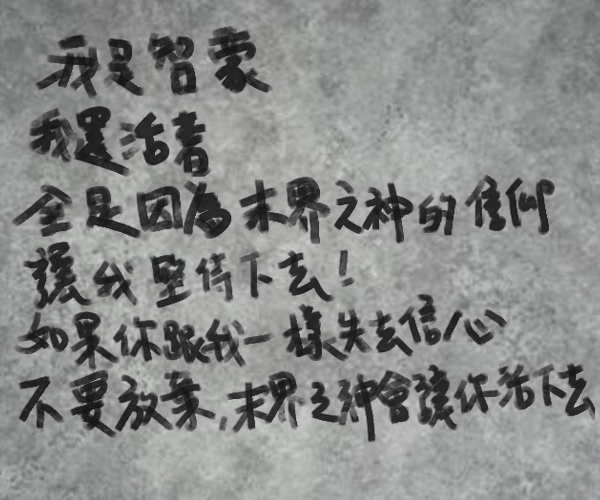 我是智蒙
我還活著
全是因為末界之神的信仰
讓我堅信下去!
如果你跟我一樣失去信心
不要放棄,末界之神會讓你活下去